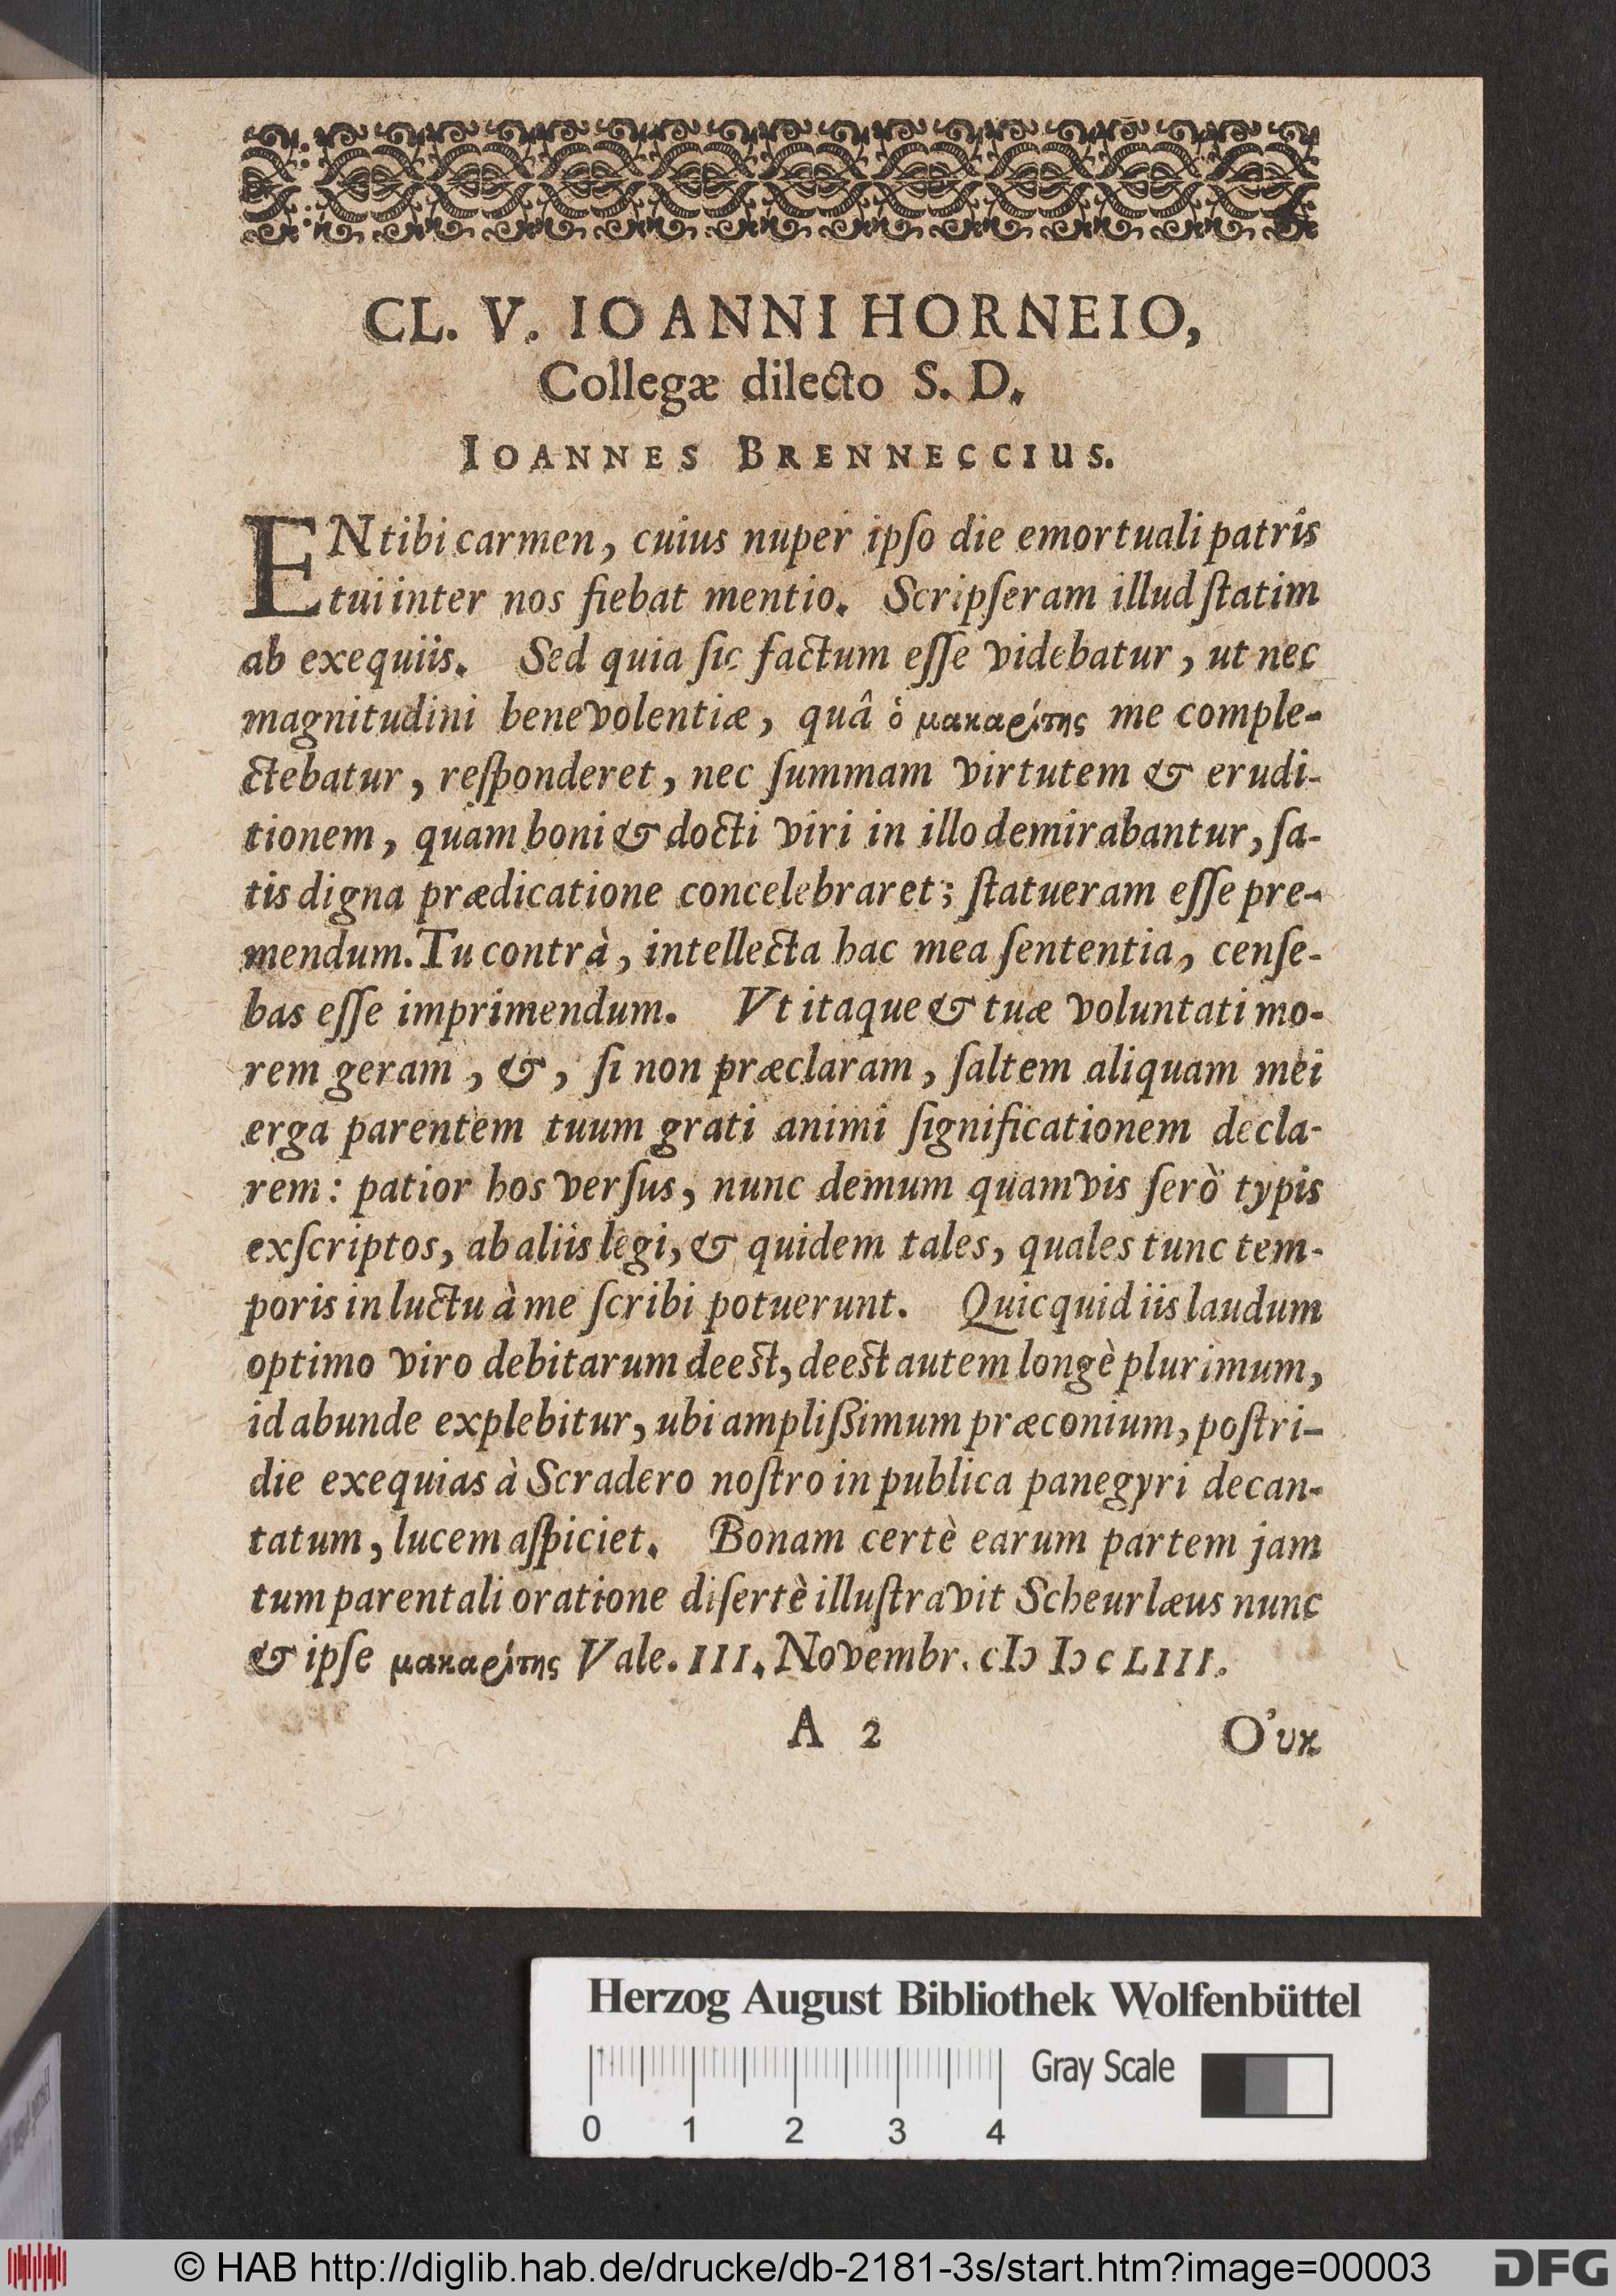 CL. V. IOANNI HORNEIO,
Collegæ dilecto S. D.
IOANNES BRENNECCIUS.
EN tibi carmen, cuius nuper ipſo die emortuali patris
tui inter nos fiebat mentio. Scripſeram illud ſtatim
ab exequiis. Sed quia ſic factum eſſe videbatur, ut nec
magnitudini benevolentiæ, quâ ὁ μακαρίτης me comple-
ctebatur, reſponderet, nec ſummam virtutem & erudi-
tionem, quam boni & docti viri in illo demirabantur, ſa-
tis digna prædicatione concelebraret; ſtatueram eſſe pre-
mendum. Tu contrà, intellecta hac mea ſententia, cenſe-
bas eſſe imprimendum. Vt itaque & tuæ voluntati mo-
rem geram, &, ſi non præclaram, ſaltem aliquam mei
erga parentem tuum grati animi ſignificationem decla-
rem: patior hos verſus, nunc demum quamvis ſerò typis
exſcriptos, ab aliis legi, & quidem tales, quales tunc tem-
poris in luctu à me ſcribi potuerunt. Quicquid iis laudum
optimo viro debitarum deeſt, deeſt autem longè plurimum,
id abunde explebitur, ubi ampliſsimum præconium, poſtri-
die exequias à Scradero noſtro in publica panegyri decan-
tatum, lucem aſpiciet. Bonam certè earum partem jam
tum parentali oratione diſertè illuſtravit Scheurlæus nunc
& ipſe μακαρίτης Vale. III. Novembr. cIↄ Iↄ c LIII.
A 2 O'υκ
Herzog August Bibliothek Wolfenbüttel
Gray Scale
0 1 2 3 4
© HAB http://diglib.hab.de/drucke/db-2181-3s/start.htm?image=00003
DFG